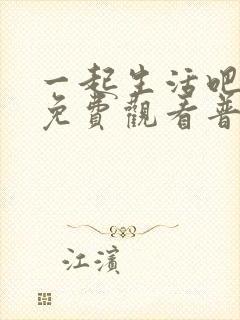 一起生活吧
免費觀看普
江濱